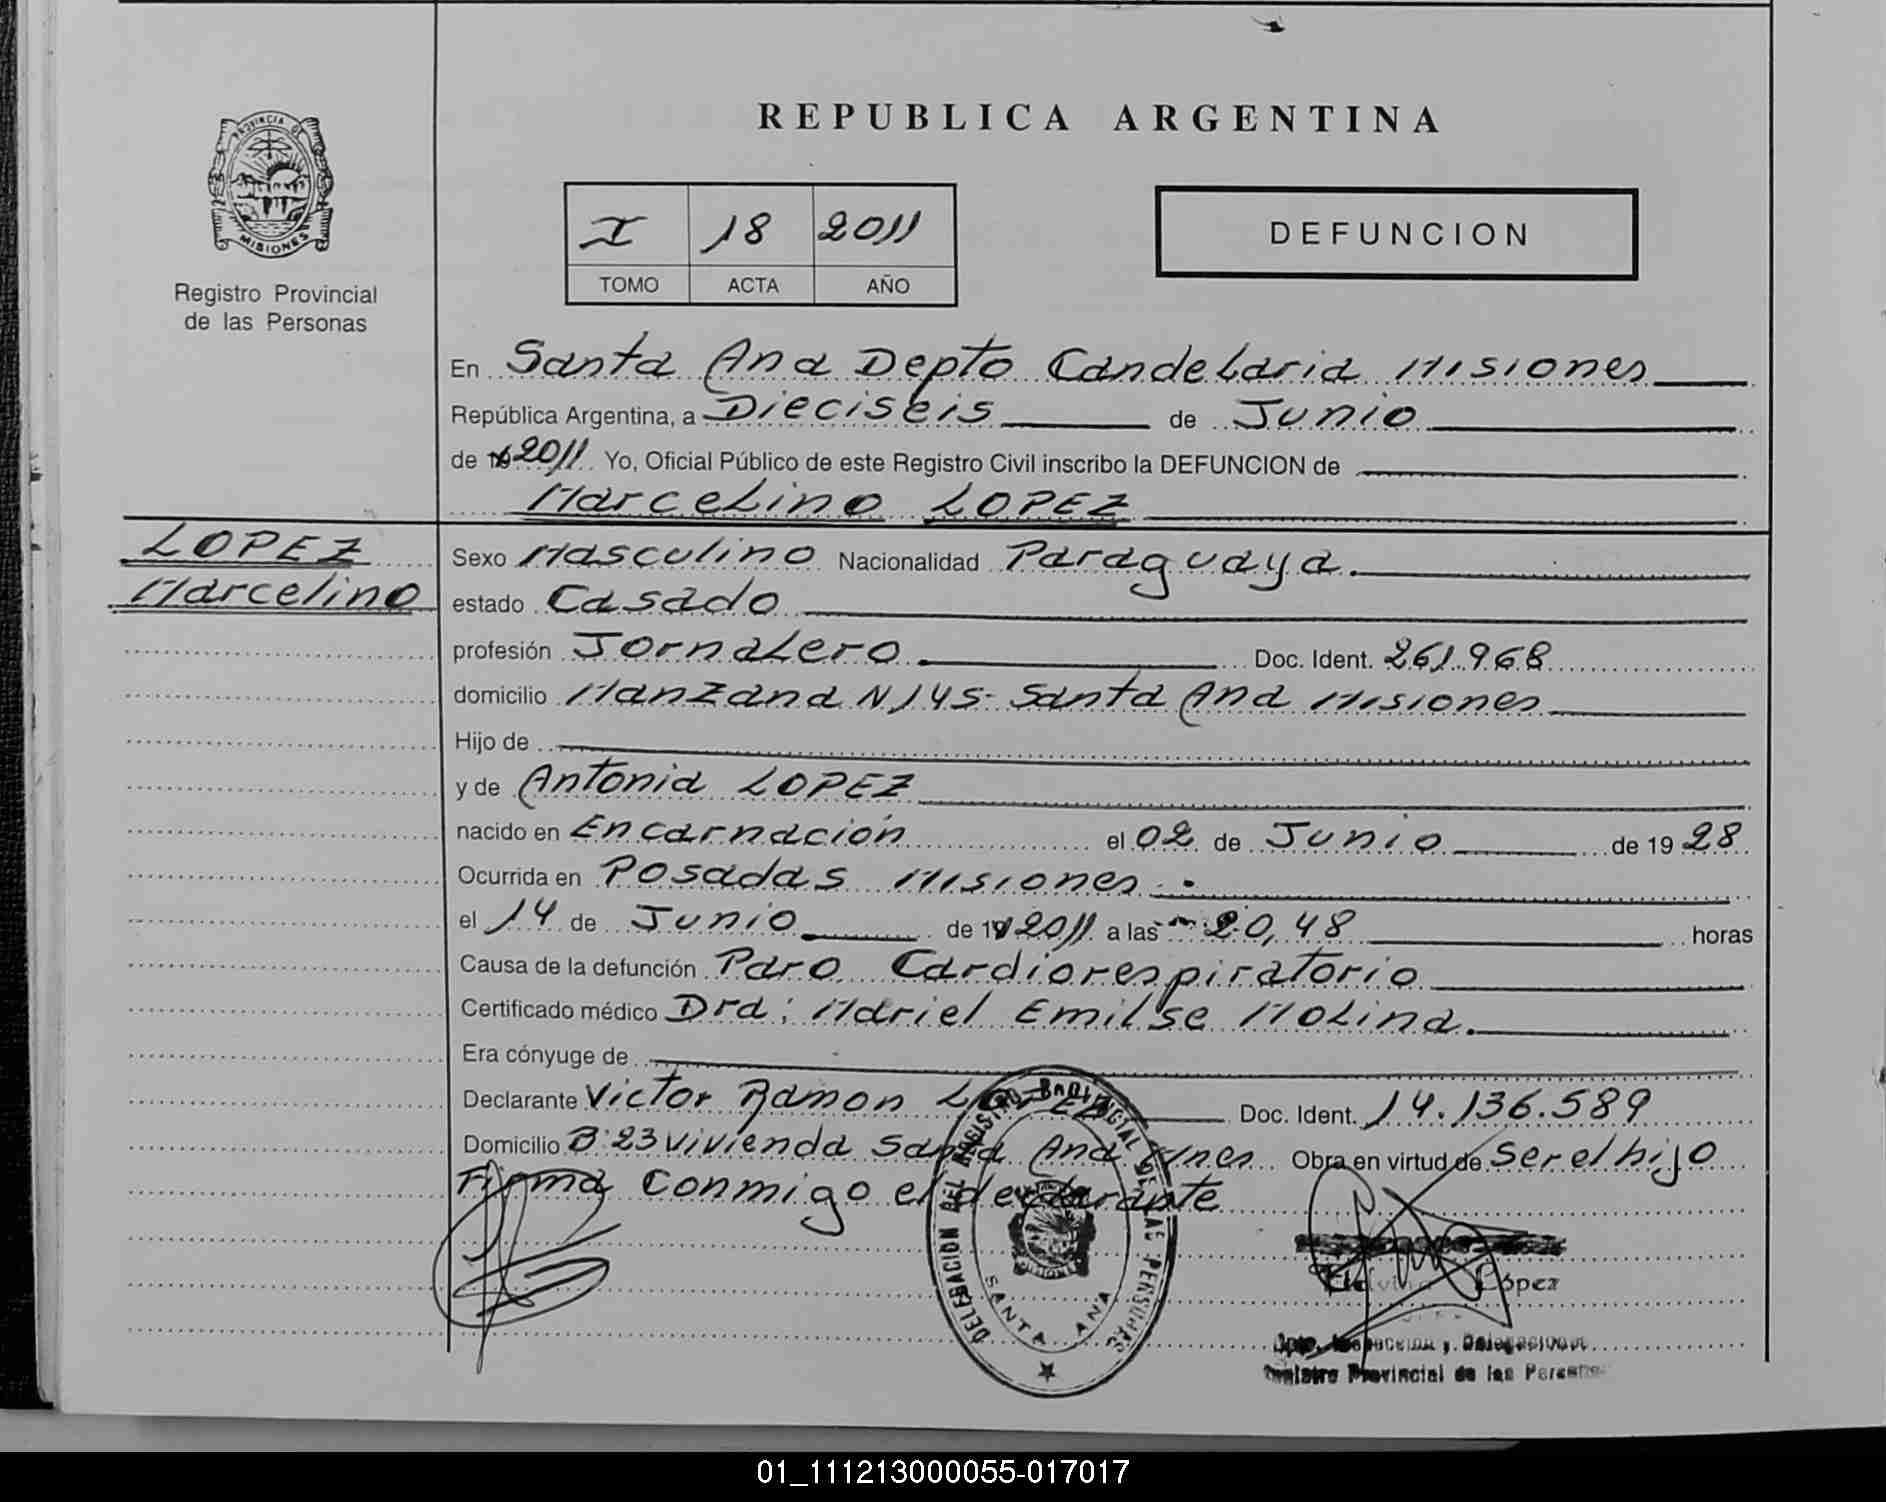 REPUBLICA ARGENTINA
PROVINCIA DE
MISIONES
Registro Provincial
de las Personas
I 18 2011
TOMO ACTA AÑO
DEFUNCION
En Santa Ana Depto Candelaria Misiones
República Argentina, a Dieciseis de Junio
de 19 2011 Yo, Oficial Público de este Registro Civil inscribo la DEFUNCION de
Marcelino LOPEZ
LOPEZ
Marcelino
Sexo Masculino Nacionalidad Paraguaya.
estado Casado
profesión Jornalero Doc. Ident. 261.968
domicilio Manzana N 145- Santa Ana Misiones
Hijo de
y de Antonia LOPEZ
nacido en Encarnación el 02 de Junio de 19 28
Ocurrida en Posadas Misiones.
el 14 de Junio de 19 2011 a las 20,48 horas
Causa de la defunción Paro Cardiorespiratorio
Certificado médico Dra: Mariel Emilse Molina.
Era cónyuge de
Declarante Victor Ramon LOPEZ Doc. Ident. 14.136.589
Domicilio B: 23 vivienda Santa Ana Mnes Obra en virtud de Ser el hijo
Firma Conmigo el declarante
DELEGACION DEL REGISTRO PROVINCIAL DE LAS PERSONAS
SANTA ANA
López
Dpto. Inspeccion y Delegaciones
Registro Provincial de las Personas
01_111213000055-017017